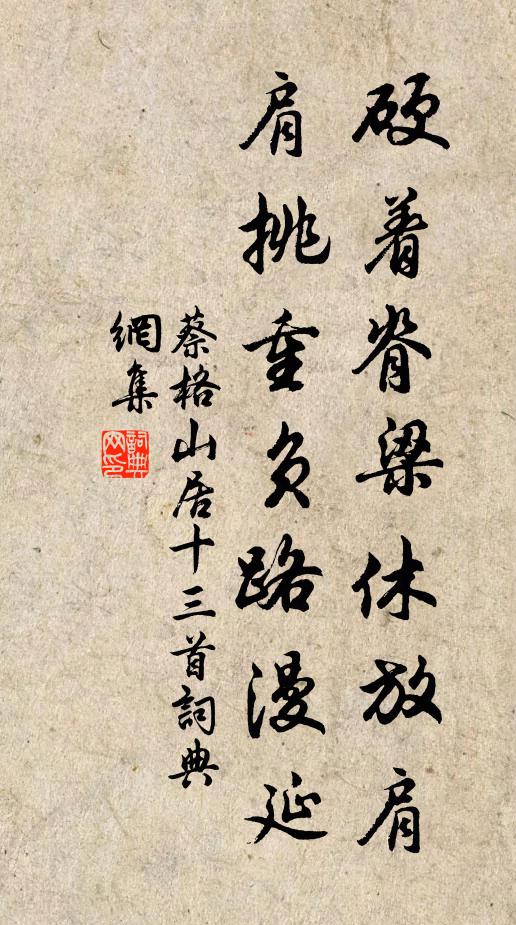 硬着脊梁休放肩
肩挑重负路漫延
蔡格山居十三首詞典
網集
詞典
网印